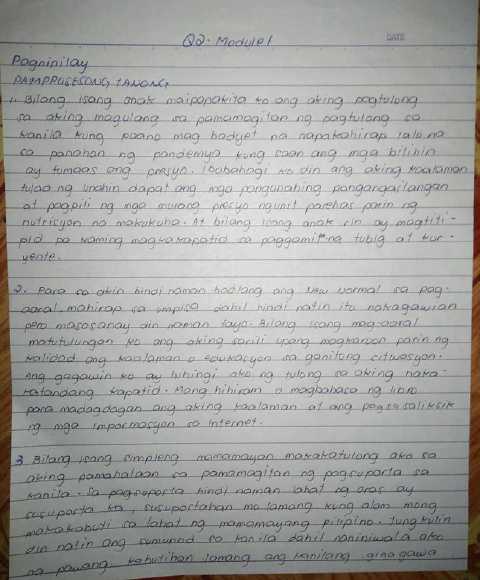 Q2 - Module 1
DATE
Pagninilay
PAMPROSESONG TANONG
1. Bilang isang anak maipapakita ko ang aking pagtulong
sa aking magulang sa pamamagitan ng pagtulong sa
kanila kung paano mag badyet na napakahirap lalo na
sa panahon ng pandemya kung saan ang mga bilihin
ay tumaas ang presyo. Ibabahagi ko din ang aking kaalaman
tulad ng unahin dapat ang mga pangunahing pangangailangan
at pagpili ng mga murang presyo ngunit parehas parin ng
nutrisyon na makukuha. At bilang isang anak rin ay magtiti-
pid pa kaming magkakapatid sa paggamit na tubig at kur-
yente.
2. Para sa akin hindi naman hadlang ang New Normal sa pag-
aaral mahirap sa umpisa dahil hindi natin ito nakagawian
pero masasanay din naman tayo. Bilang isang mag-aaral
matutulungan ko ang aking sarili upang magkaroon parin ng
kalidad ang kaalaman o edukasyon sa ganitong citwasyon.
Ang gagawin ko ay hihingi ako ng tulong sa aking naka-
katandang kapatid. Mang hihiram o magbabasa ng libro
para madagdagan ang aking kaalaman at ang pagsasaliksik
ng mga impormasyon sa internet.
3. Bilang isang simpleng mamamayan makakatulong ako sa
aking pamahalaan sa pamamagitan ng pagsuporta sa
kanila. Sa pagsuporta hindi naman lahat ng oras ay
susuporta ka, susuportahan mo lamang kung alam mong
makakabuti sa lahat ng mamamayang pilipino. Tungkulin
din natin ang sumunod sa kanila dahil naniniwala ako
na pawang kabutihan lamang ang kanilang ginagawa